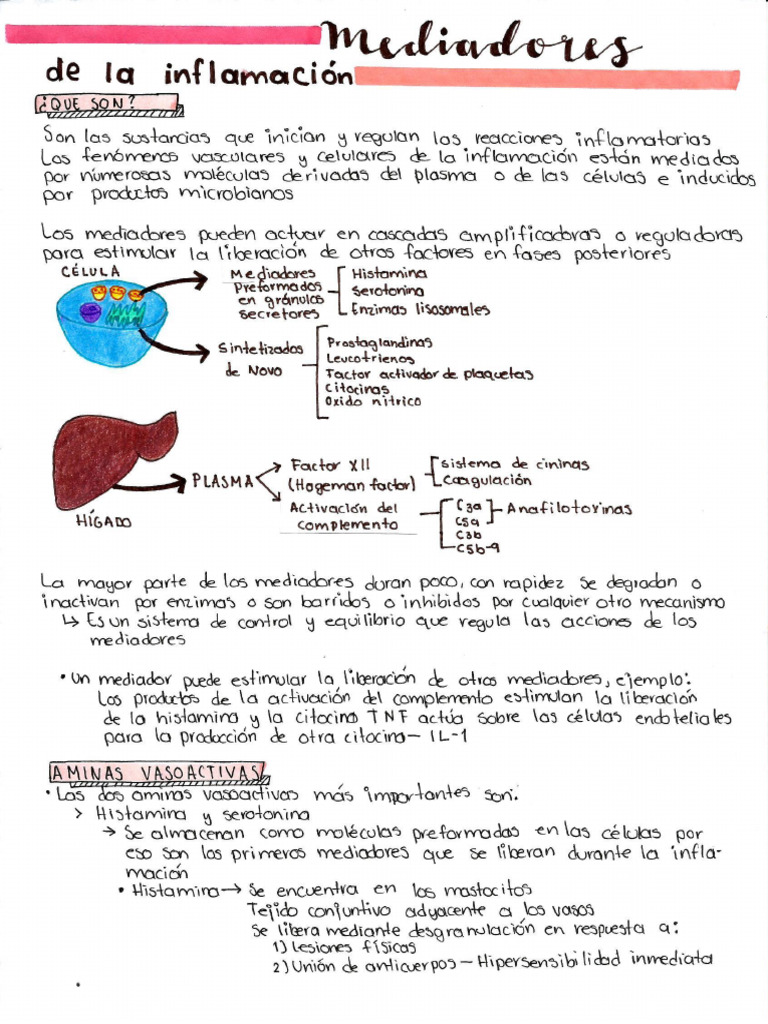 Mediadores
de la inflamación
¿QUE SON?
Son las sustancias que inician y regulan las reacciones inflamatorias
Los fenómenos vasculares y celulares de la inflamación están mediados
por numerosas moléculas derivadas del plasma o de las células e inducidos
por productos microbianos
Los mediadores pueden actuar en cascadas amplificadoras o reguladoras
para estimular la liberación de otros factores en fases posteriores
CÉLULA
Mediadores
Preformados
en gránulos
secretores
Histamina
Serotonina
Enzimas lisosomales
Sintetizados
de Novo
Prostaglandinas
Leucotrienos
Factor activador de plaquetas
Citocinas
Oxido nítrico
HÍGADO
PLASMA
Factor XII
(Hageman factor)
Sistema de cininas
Coagulación
Activación del
complemento
C3a
C5a
C3b
C5b-9
Anafilotorinas
La mayor parte de los mediadores duran poco, con rapidez se degradan o
inactivan por enzimas o son barridos o inhibidos por cualquier otro mecanismo
↳ Es un sistema de control y equilibrio que regula las acciones de los
mediadores
• Un mediador puede estimular la liberación de otros mediadores, ejemplo:
Los productos de la activación del complemento estimulan la liberación
de la histamina y la citocina TNF actúa sobre las células endoteliales
para la producción de otra citocina — IL-1
AMINAS VASOACTIVAS
• Las dos aminas vasoactivas más importantes son:
> Histamina y serotonina
→ Se almacenan como moléculas preformadas en las células por
eso son los primeros mediadores que se liberan durante la infla-
mación
• Histamina → Se encuentra en los mastocitos
Tejido conjuntivo adyacente a los vasos
Se libera mediante desgranulación en respuesta a:
1) Lesiones físicas
2) Unión de anticuerpos — Hipersensibilidad inmediata